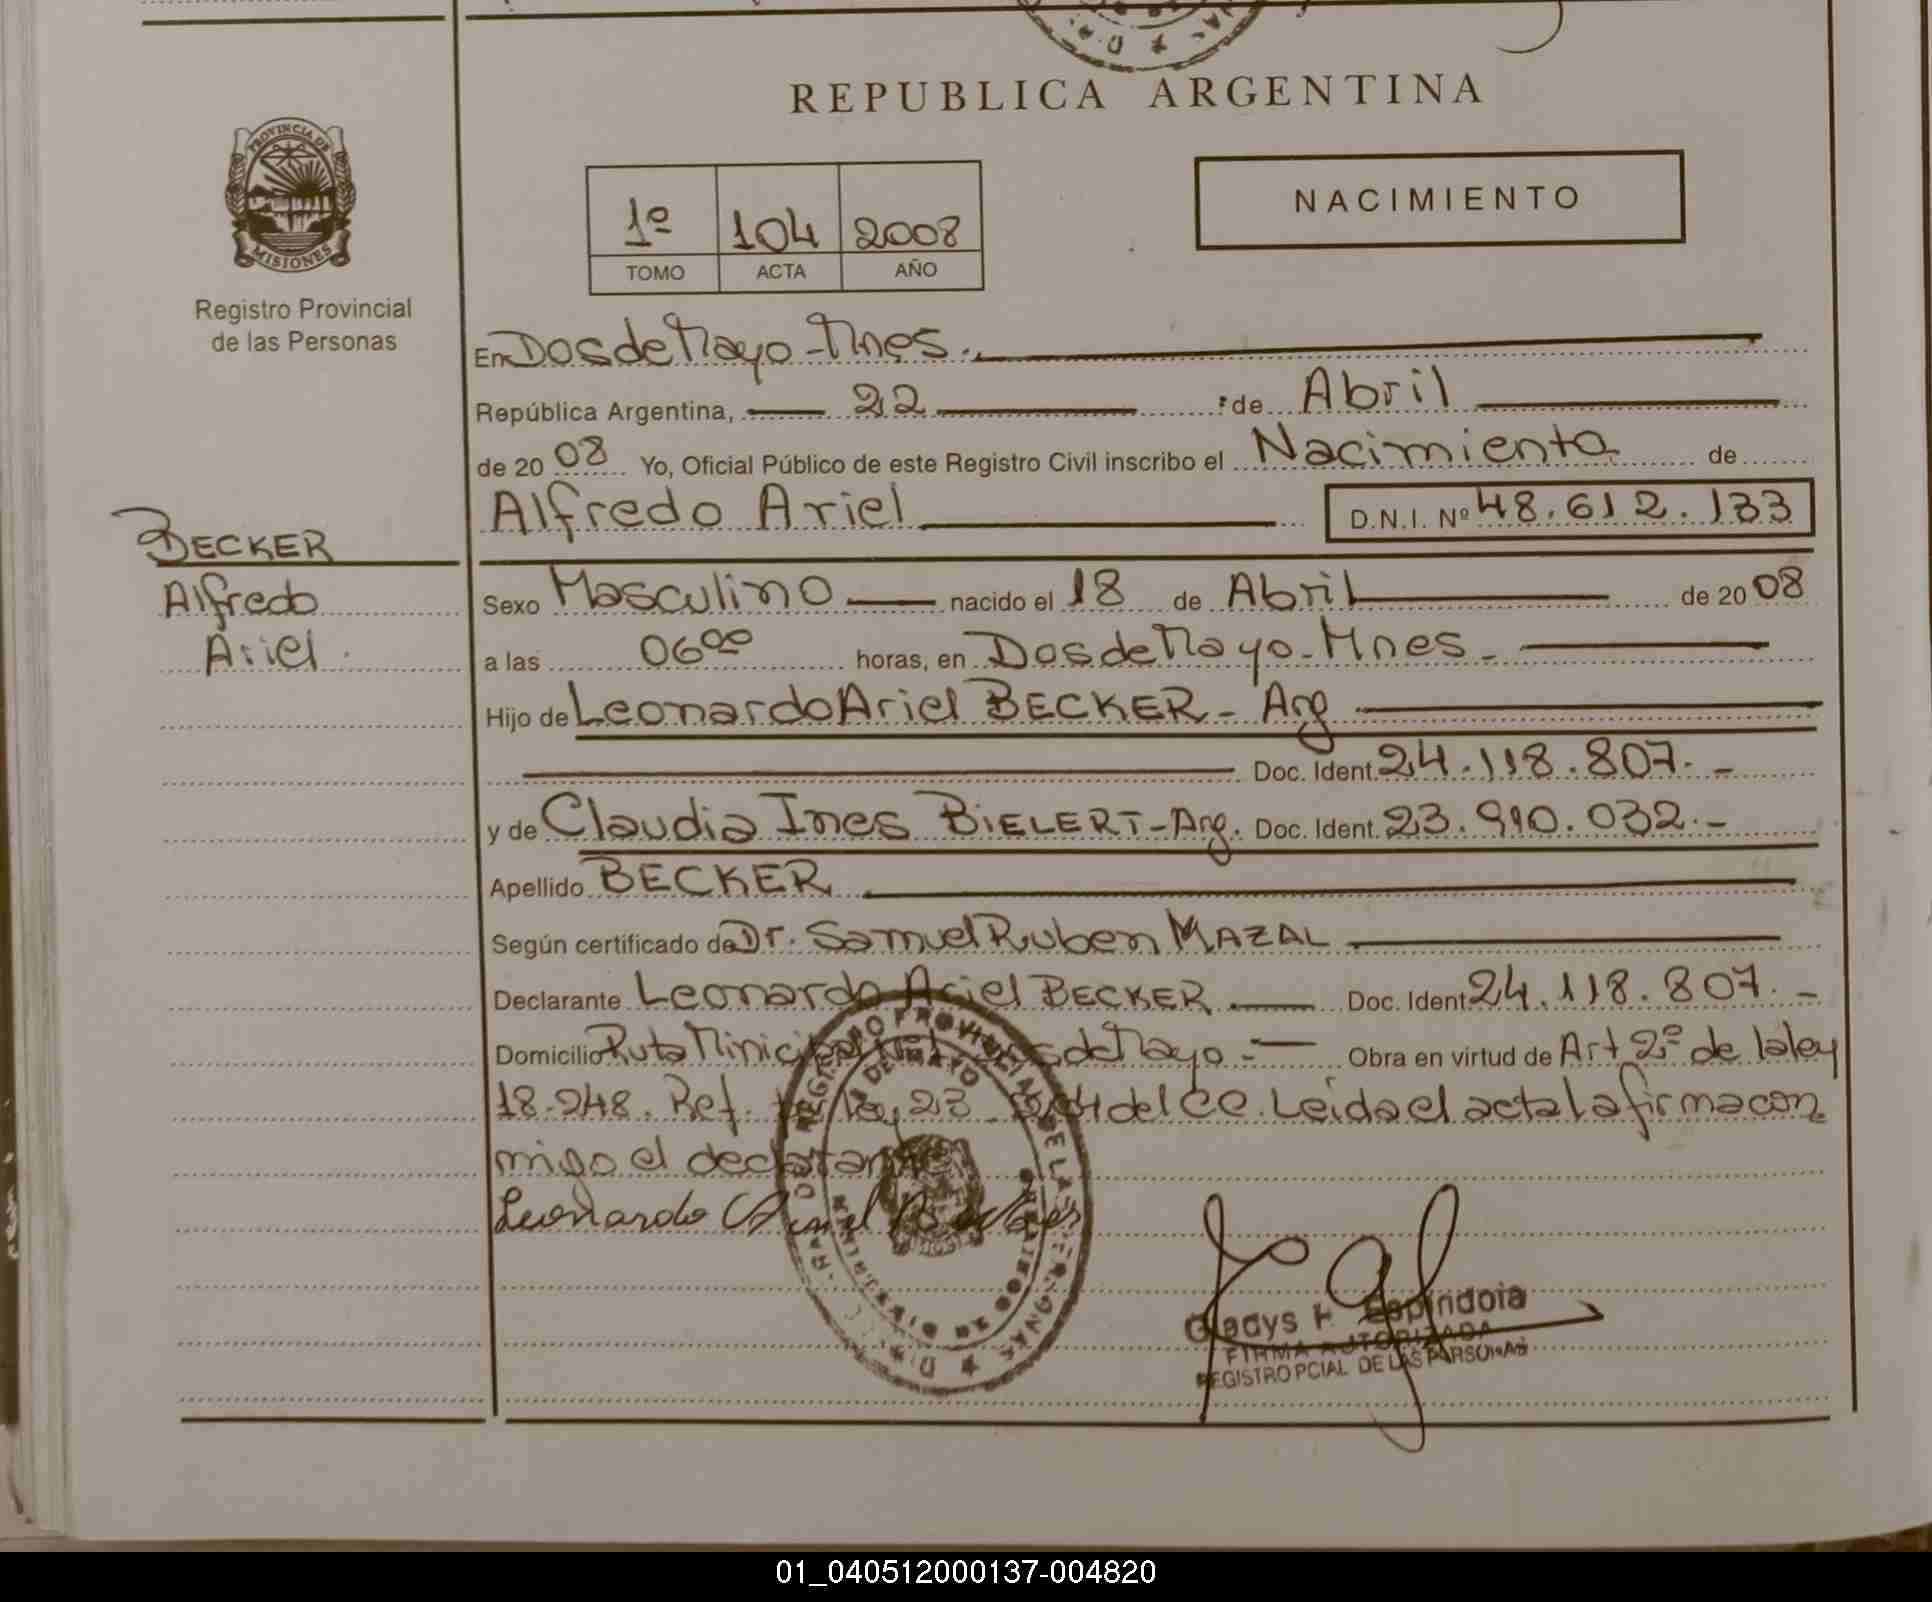 REPUBLICA ARGENTINA
PROVINCIA DE
MISIONES
Registro Provincial
de las Personas
1º 104 2008
TOMO ACTA AÑO
NACIMIENTO
En Dos de Mayo - Mnes.
República Argentina, 22 de Abril
de 20 08 Yo, Oficial Público de este Registro Civil inscribo el Nacimiento de
Alfredo Ariel D.N.I. Nº 48.612.133
BECKER
Alfredo
Ariel.
Sexo Masculino nacido el 18 de Abril de 20 08
a las 06ºº horas, en Dos de Mayo - Mnes -
Hijo de Leonardo Ariel BECKER - Arg
Doc. Ident. 24.118.807.-
y de Claudia Ines BIELERT - Arg. Doc. Ident. 23.910.032.-
Apellido BECKER
Según certificado de Dr. Samuel Ruben MAZAL
Declarante Leonardo Ariel BECKER Doc. Ident. 24.118.807.-
Domicilio Ruta de Mayo.- Obra en virtud de Art 2º de la ley
18.248. Ref. 23 del CC. Leida el acta la firma con
migo el declarante
Leonardo Ariel Becker
Gladys Espindola
FIRMA AUTORIZADA
REGISTRO PCIAL DE LAS PERSONAS
01_040512000137-004820